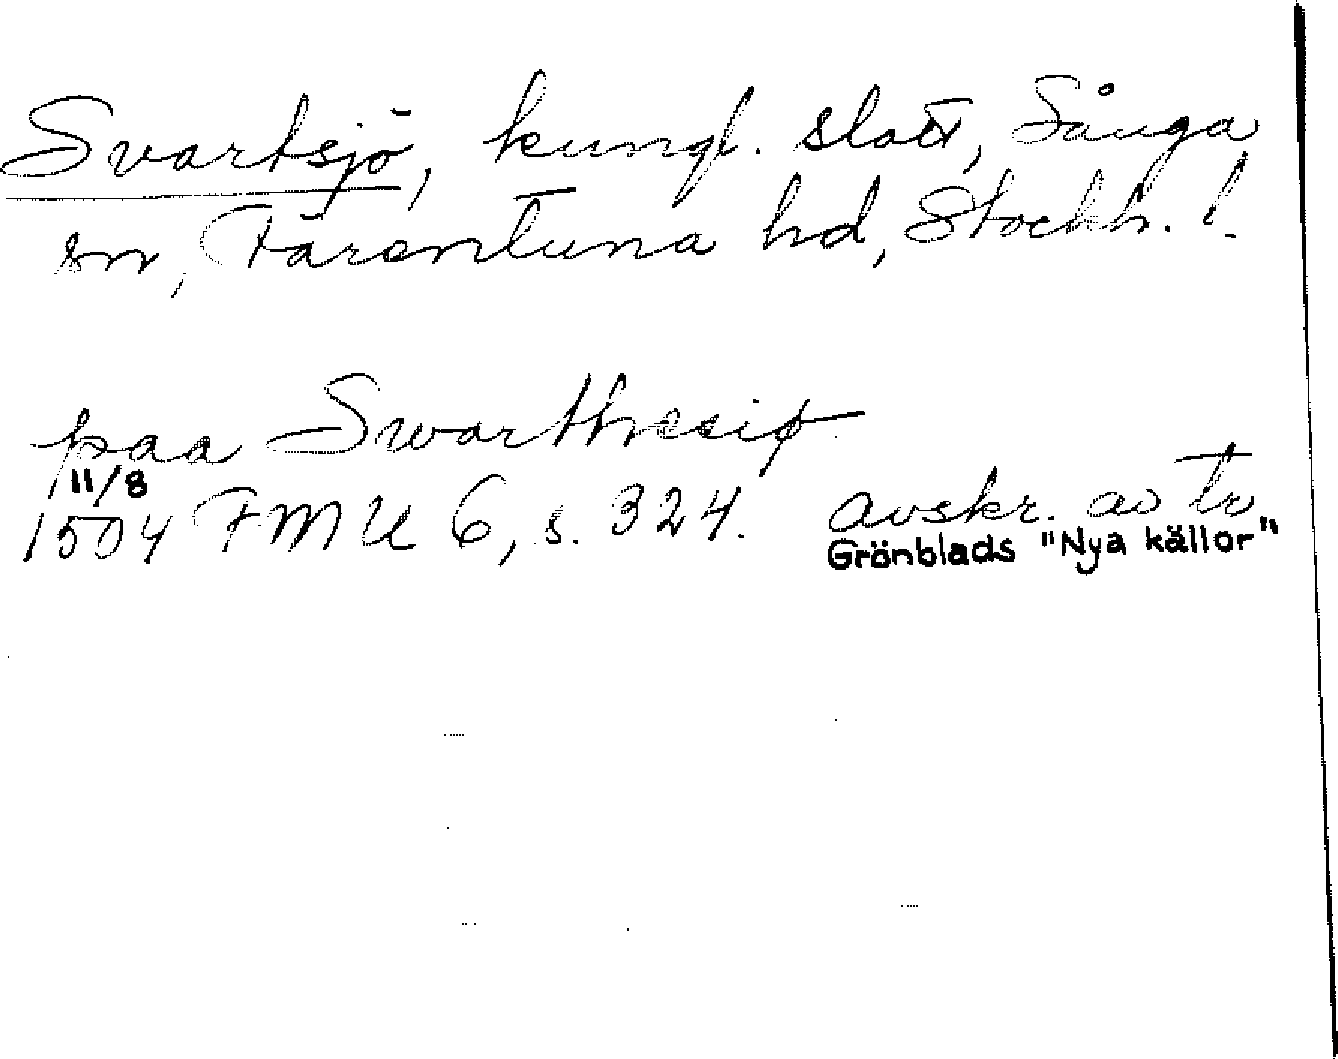 Svartsjö, kungl. slott, Sånga
sn, Färentuna hd, Stockh. l.
paa Swarthesiø
11/8
1504 FMU 6, s. 324. avskr. av tr
Grönblads "Nya källor"